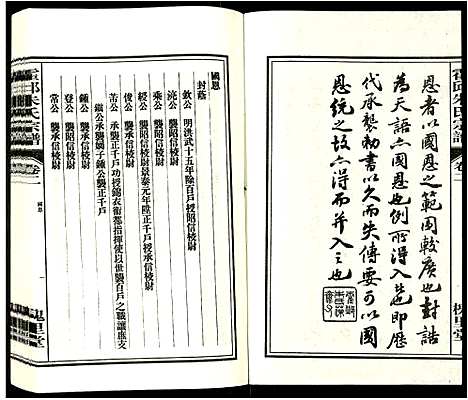 恩者以國恩之範围較廣也封誥
為天語亦國恩也例所得入也即歷
代承襲勅書以久而失傳要可以國
恩統之故亦得而并入之也
槐里堂
霍邱朱氏宗譜
卷二
國恩
一
槐里堂
國恩
封蔭
欽公　明洪武十五年除百戶襲昭信校尉
澆公　襲昭信校尉
乘公　襲承信校尉
經公　襲昭信校尉景泰元年陞正千戶
俊公　襲承信校尉
苦公　承襲正千戶功授錦衣衛都指揮使以世襲百戶之職讓庶支
鎮公　承襲嫡子鍾公襲正千戶
鍾公　襲承信校尉
登公　襲承信校尉
常公　襲承信校尉